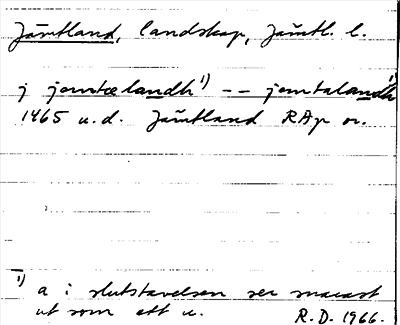 Jämtland, landskap, Jämtl. l.
j jomtelandh¹) -- jomtalandh¹)
1465 u.d. Jämtland RAp or.
¹) a i slutstavelsen ser snarast
ut som ett u. R.D. 1966.